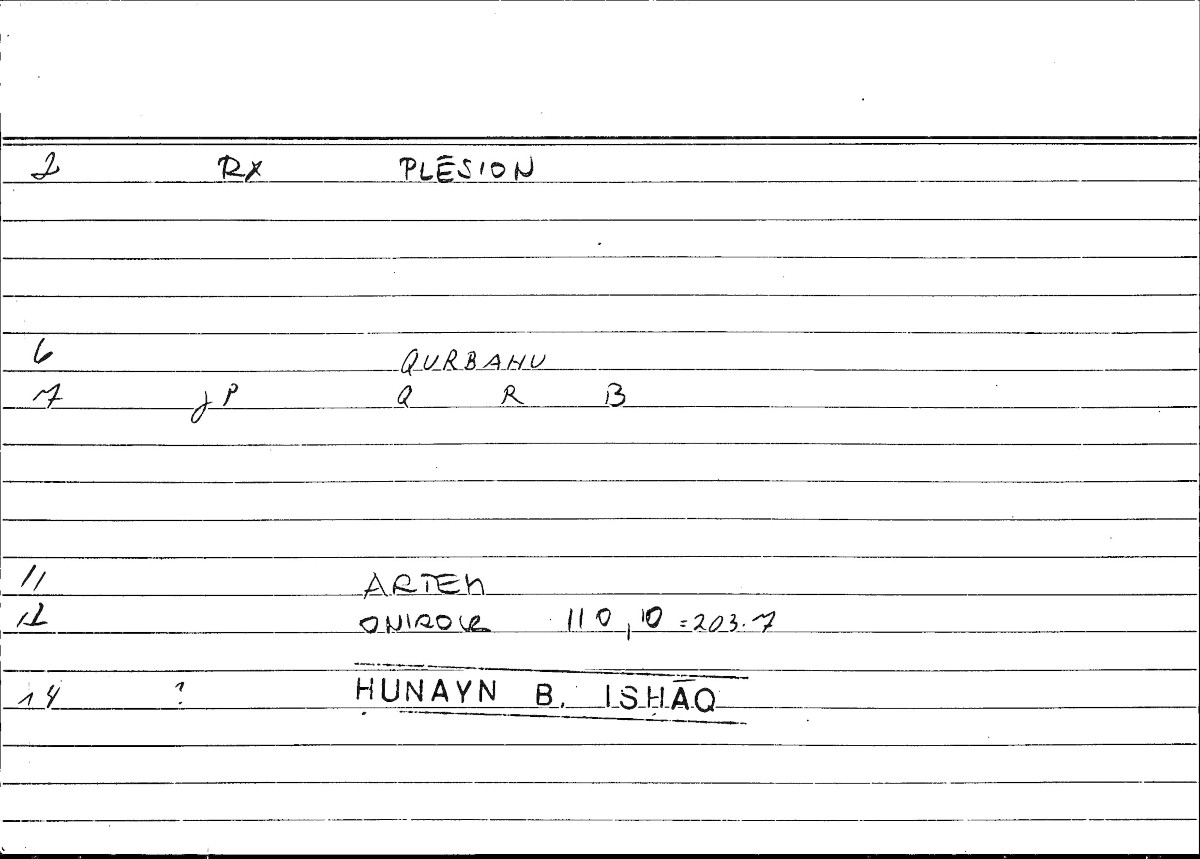 2 RX PLĒSION
6 QURBAHU
7 jP Q R B
11 ARTEM
12 ONIROCR 110,10 = 203.7
14 ? ḤUNAYN B. ISḤĀQ